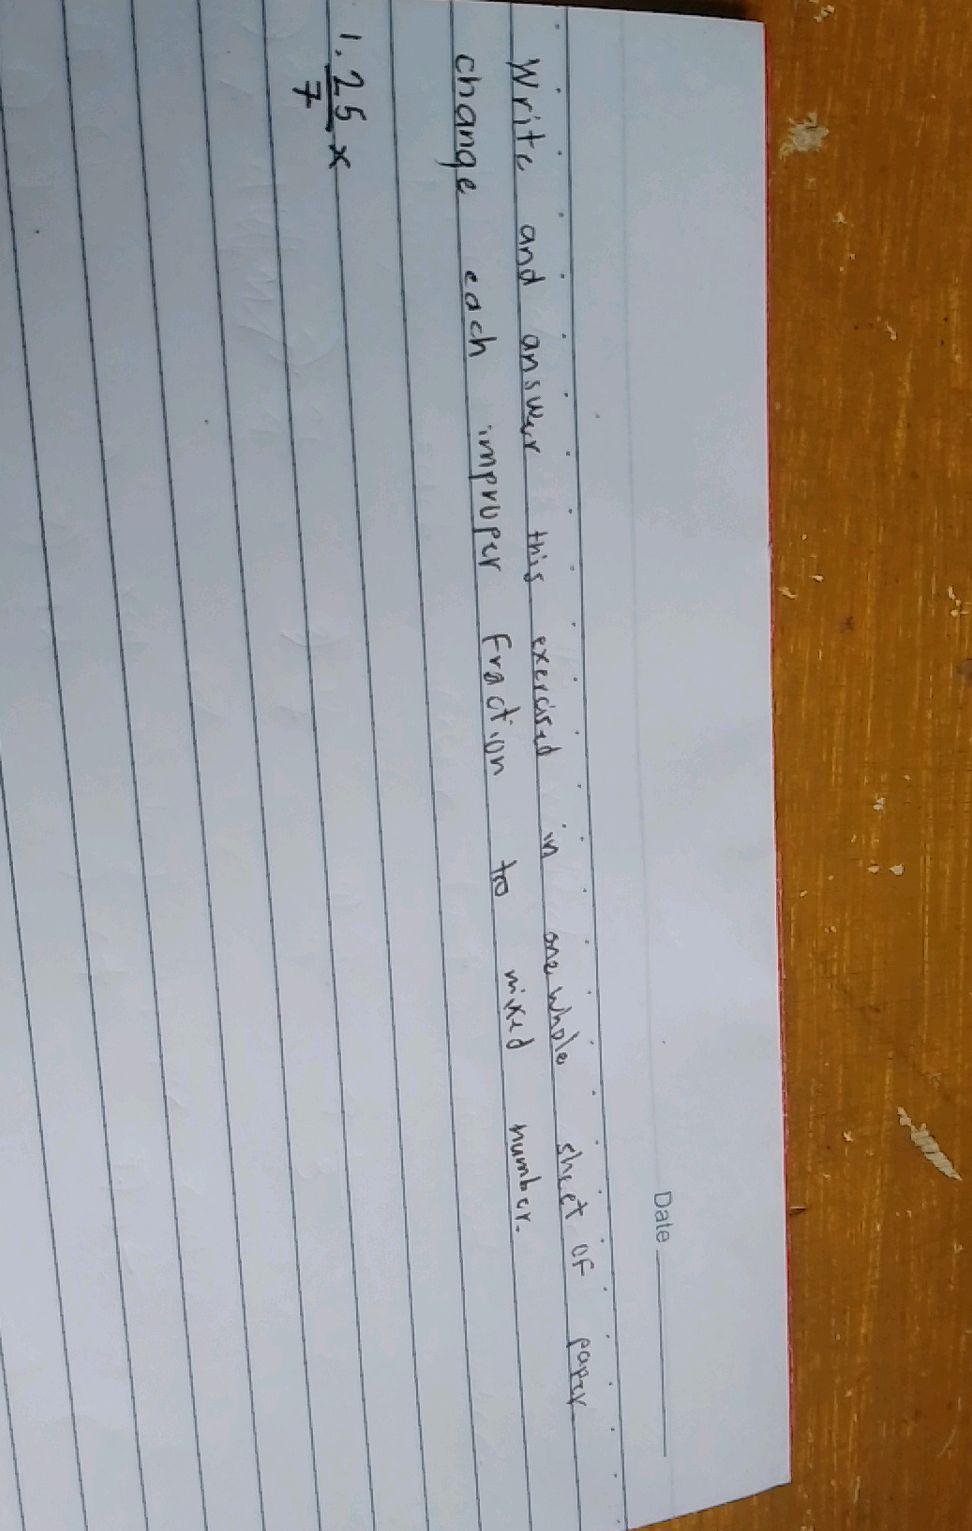 Date
Write and answer this exercised in one whole sheet of paper
change each improper fraction to mixed number.
1. 25 x
7